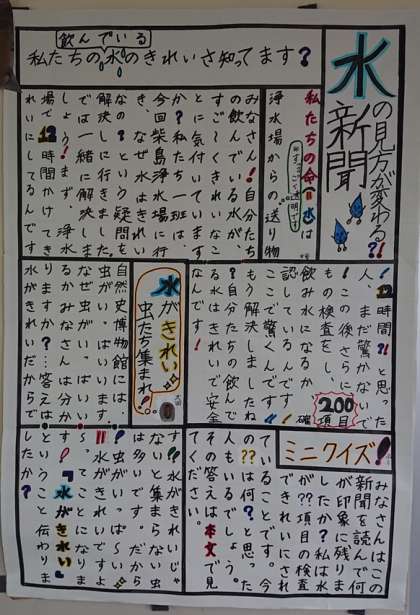 水
の見方が変わる?!
新聞
飲んでいる
私たちの水のきれいさ知ってます?
私たちの命"水"は
浄水場からの送り物
みなさん!自分たち
の飲んでいる水が
すご〜くきれいなこ
とに気付いています
か?私たち一班は、
今回柴島浄水場に行
き、なぜ水はきれい
なの?という疑問を
解決しに行きました
では一緒に解決しま
しょう!まず、浄水
場で12時間かけてき
れいにしてるんです
!12時間?!と思った
人、まだ驚かないで
!この後さらに200項目
もの検査をし、
飲み水になるか確
認しているんです!
もう解決しましたね
ここで驚くんです!!
?自分たちの飲んで
る水はきれいで安全
なんです!
水がきれい
虫たち集まれ!
自然史博物館には、
虫がい〜っぱいいます。
なぜ虫がい〜っぱいい
るかみなさんは分か
りますか?…答えは
水がきれいだからで
す!?水がきれいじゃ
ないと集まらない虫
は多いです。だから
!虫がいっぱ〜い
"水がきれい"
〜ってことになりま
す!『水がきれい』
ということ伝わりま
したか?
ミニクイズ!
みなさんはこの
新聞を読んで何
が印象に残りま
したか?私は水
が??項目の検査
できれいにされ
ていることです。今
の??は何?と思った
人もいるでしょう。
その答えは本文で見
てください。